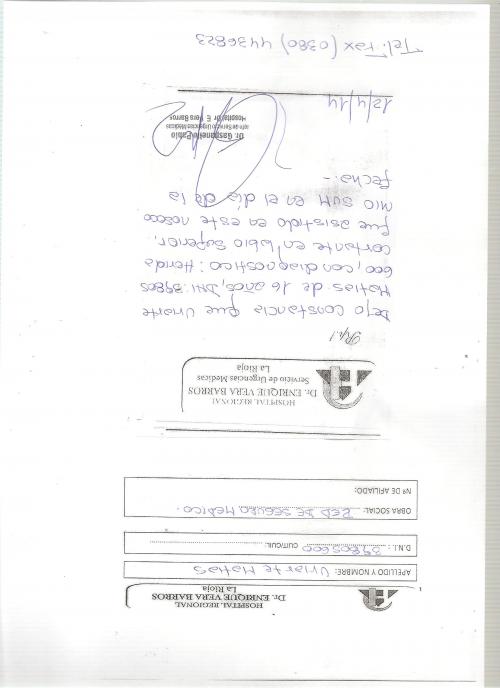 HOSPITAL REGIONAL
Dr. ENRIQUE VERA BARROS
La Rioja
APELLIDO Y NOMBRE: Uriarte Matias
D.N.I.: 39805600 CUIT/CUIL:
OBRA SOCIAL: RED DE SEGURO MEDICO.
Nº DE AFILIADO:
HOSPITAL REGIONAL
Dr. ENRIQUE VERA BARROS
Servicio de Urgencias Medicas
La Rioja
Rp./
Dejo constancia que Uriarte
Matias de 16 años, DNI: 39805
600, con diagnostico: Herida
cortante en labio superior,
fue asistido en este nosoco
mio SUM en el día de la
fecha.-
Dr. Gaspanello Pablo
Jefe de Servicio Urgencias Médicas
Hospital Dr. E. Vera Barros
12/4/14
Tel: Fax (0380) 4436823